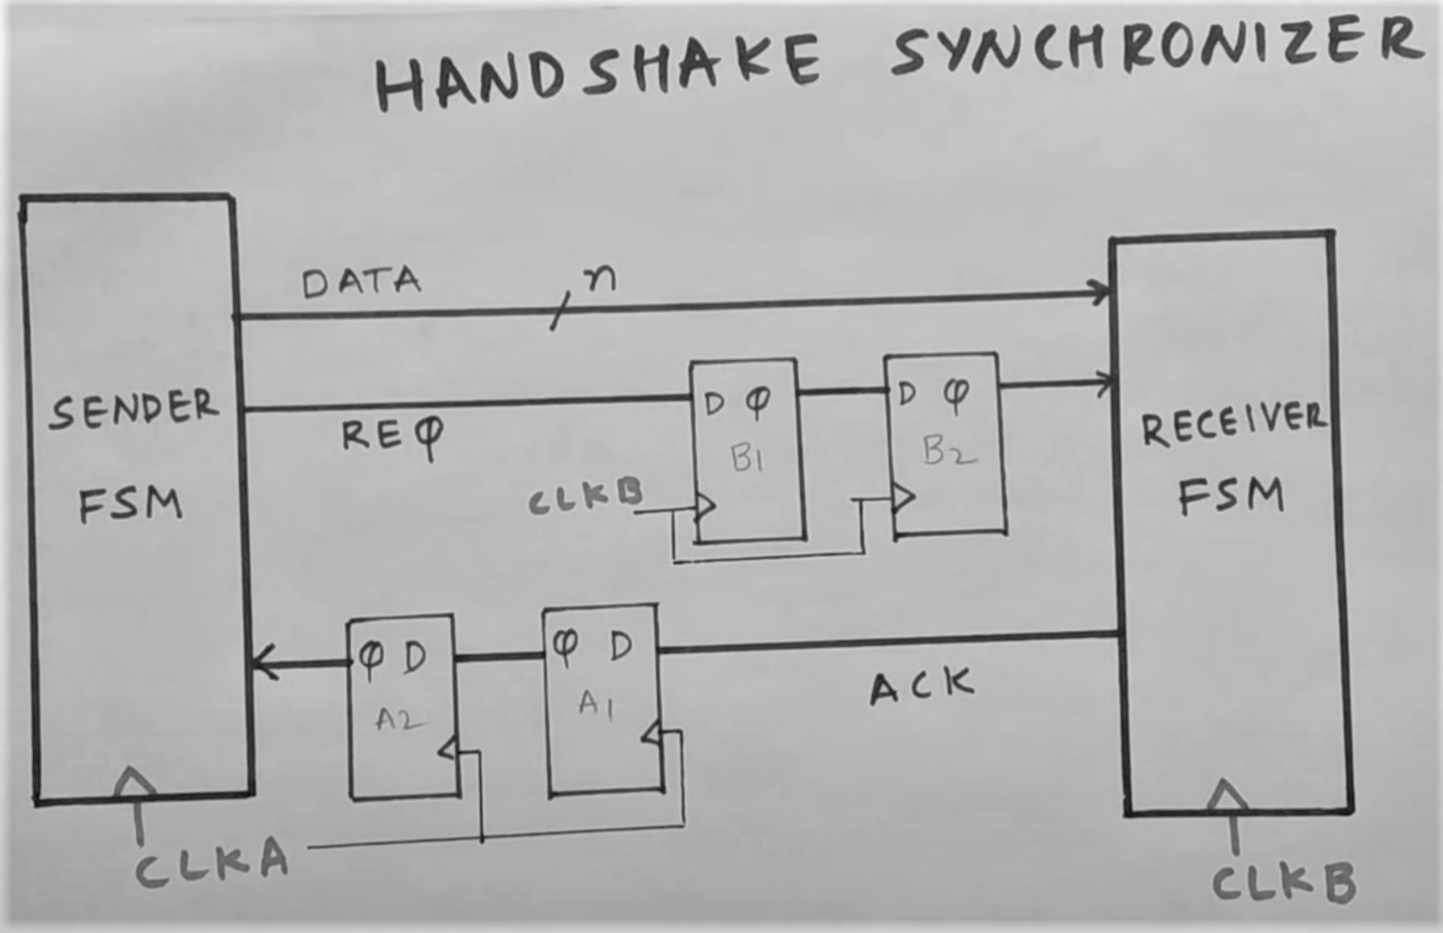 HANDSHAKE SYNCHRONIZER
DATA
n
SENDER
FSM
REQ
D Q
B1
D Q
B2
CLKB
RECEIVER
FSM
Q D
A2
Q D
A1
ACK
CLKA
CLKB